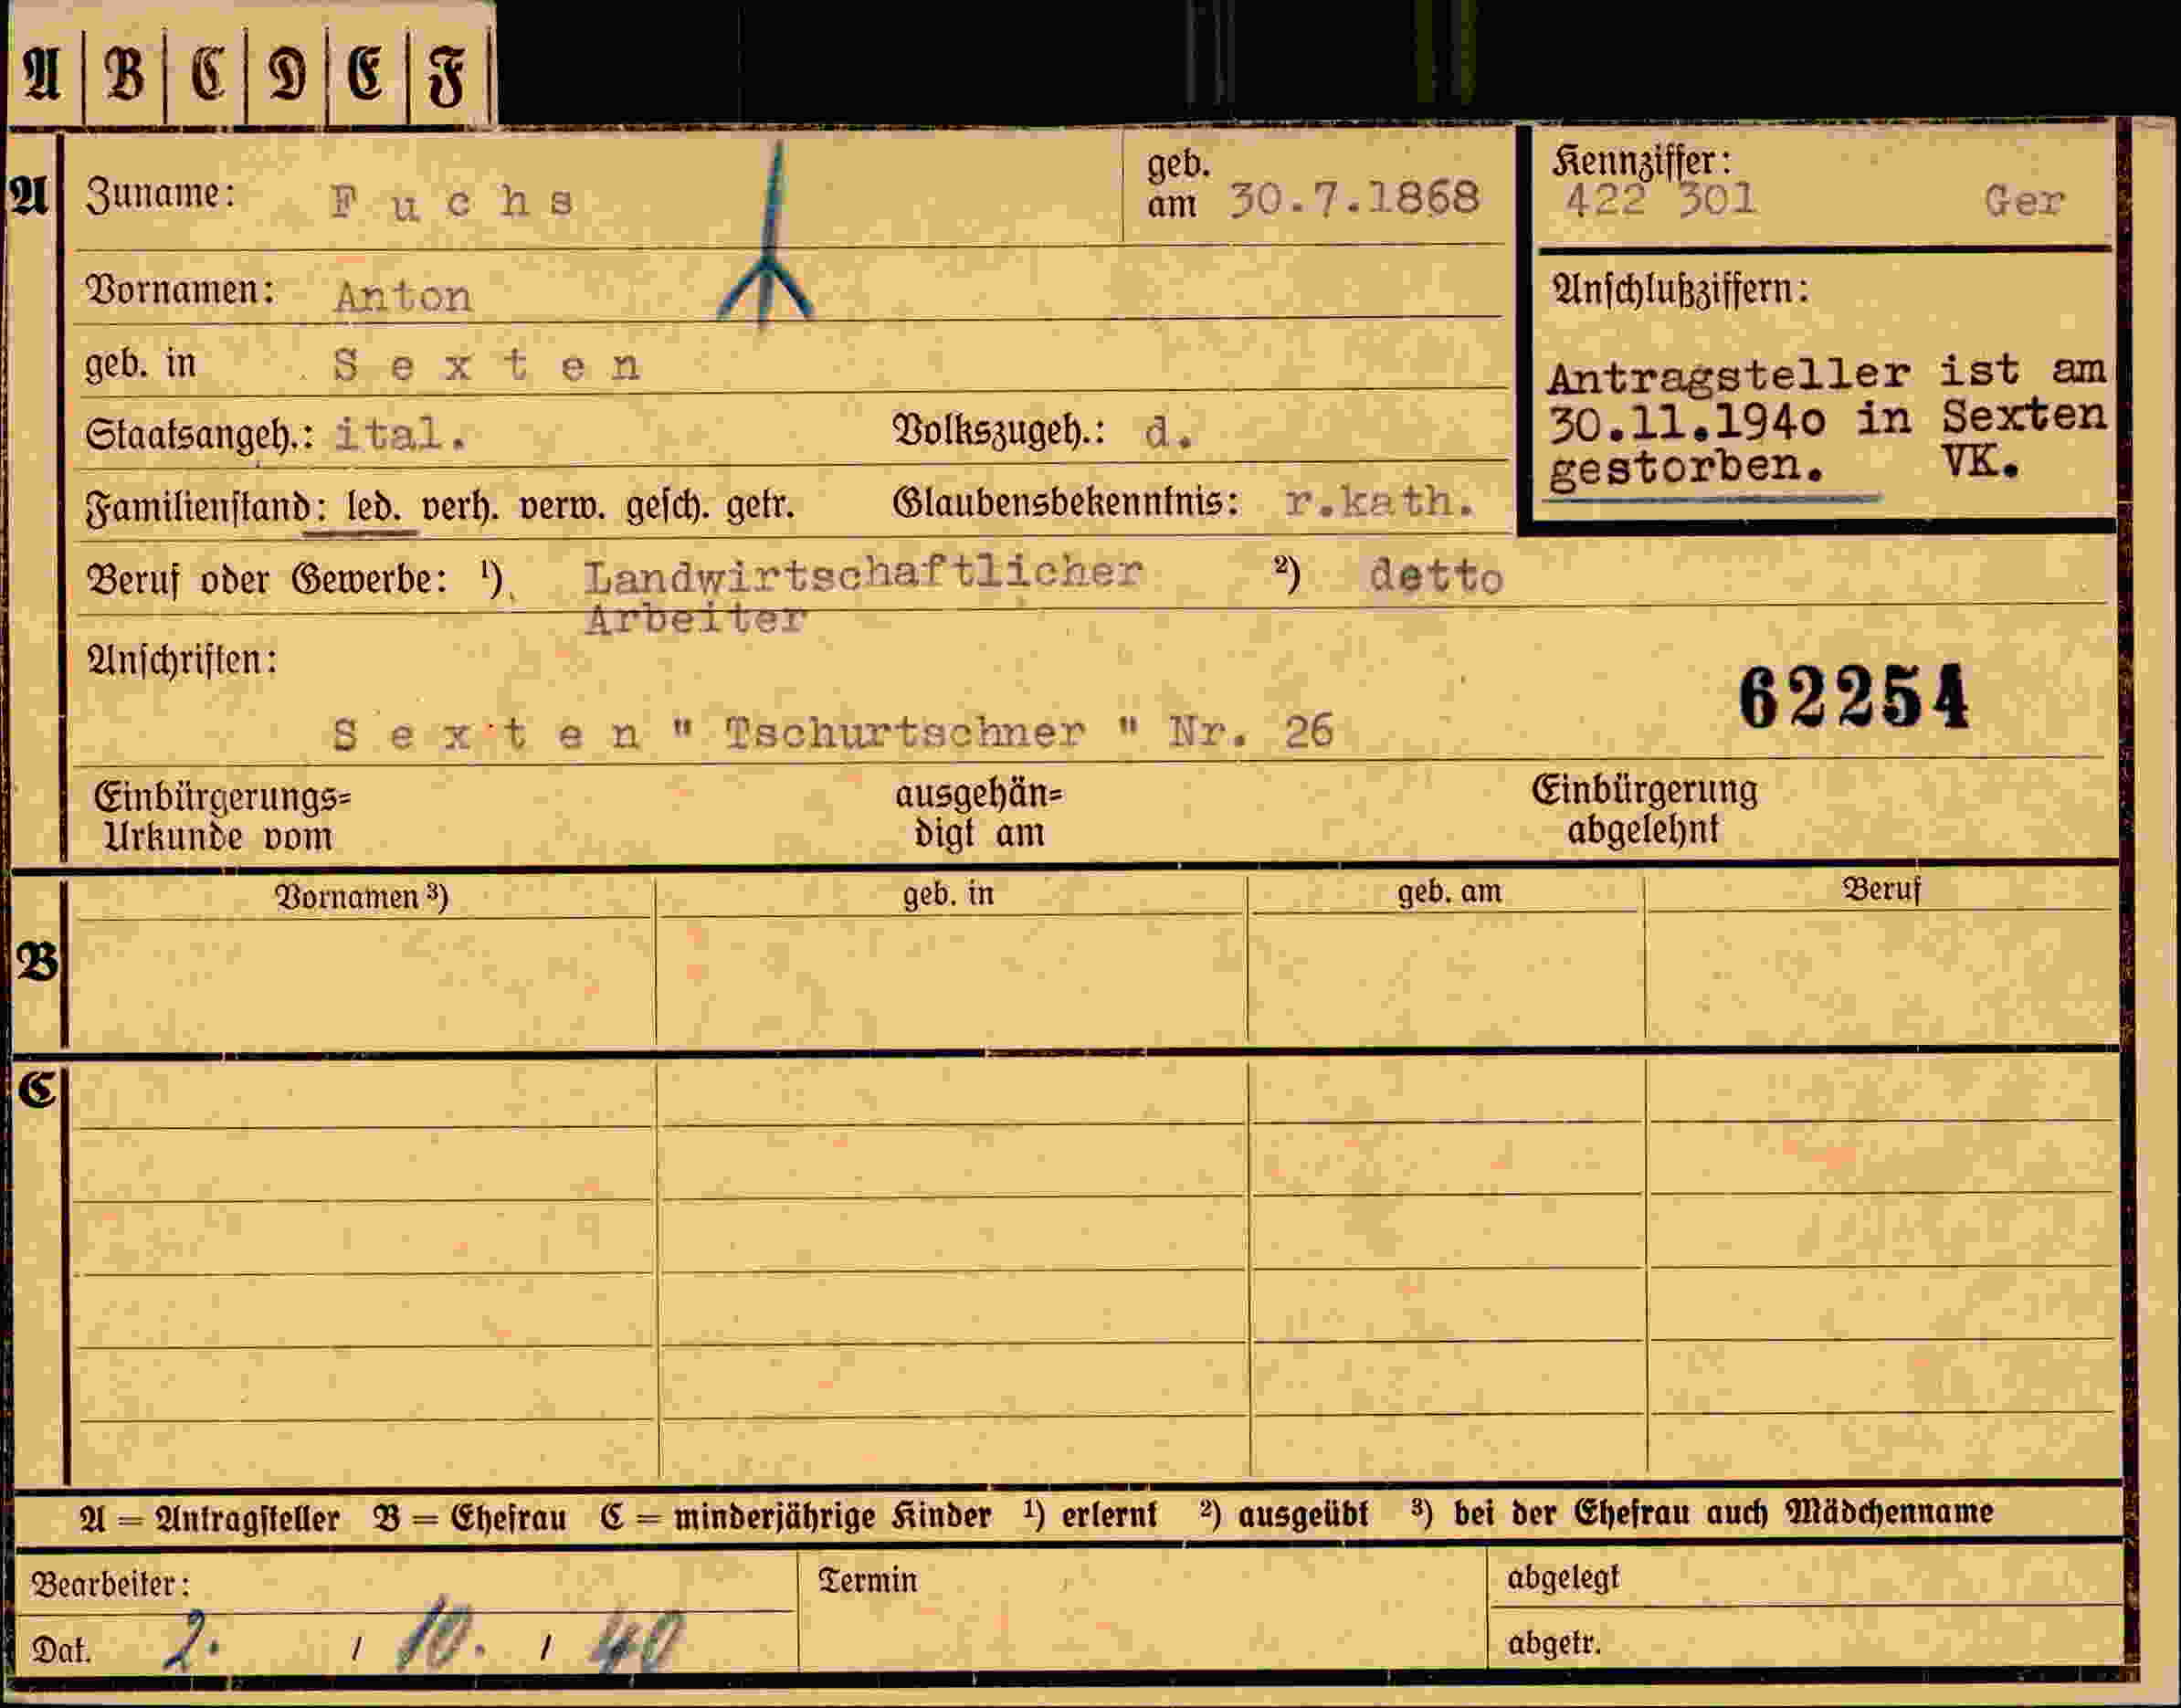 A B C D E F
A Zuname: Fuchs geb. am 30.7.1868
Kennziffer: 422 301 Ger
Vornamen: Anton
Anschlußziffern:
geb. in Sexten
Antragsteller ist am
30.11.1940 in Sexten
gestorben. VK.
Staatsangeh.: ital. Volkszugeh.: d.
Familienstand: led. verh. verw. gesch. getr. Glaubensbekenntnis: r.kath.
Beruf oder Gewerbe: ¹) Landwirtschaftlicher ²) detto
Arbeiter
Anschriften:
62254
Sexten " Tschurtschner " Nr. 26
Einbürgerungs= ausgehän= Einbürgerung
Urkunde vom digt am abgelehnt
Vornamen ³) geb. in geb. am Beruf
B
C
A = Antragsteller B = Ehefrau C = minderjährige Kinder ¹) erlernt ²) ausgeübt ³) bei der Ehefrau auch Mädchenname
Bearbeiter: Termin abgelegt
Dat. 2. / 10. / 40 abgetr.